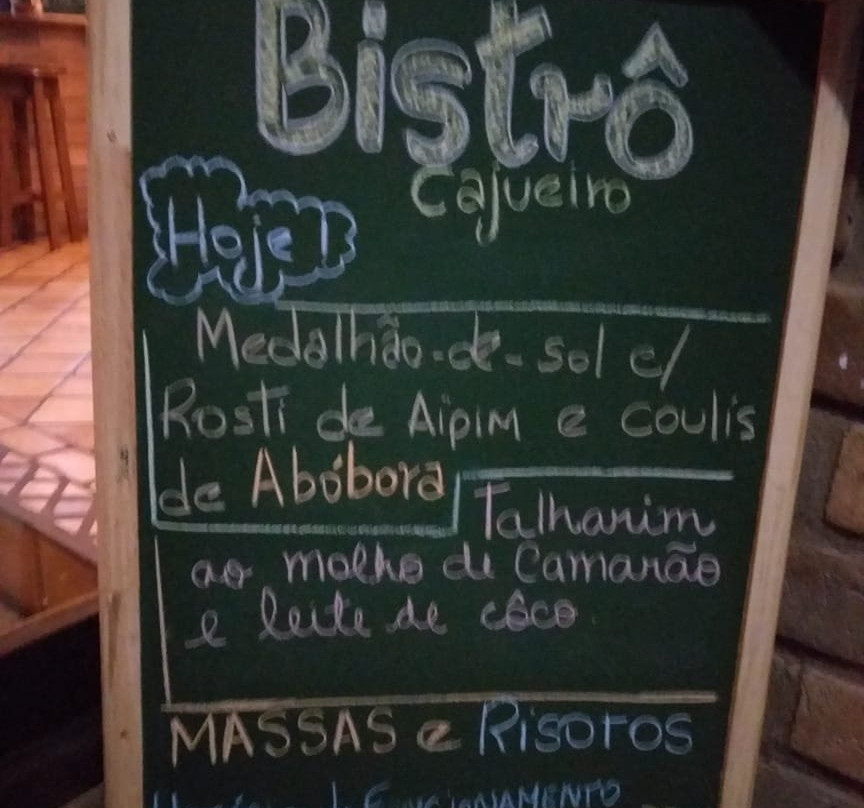 Bistrô
Cajueiro
Hoje!
Medalhão-de-sol c/
Rosti de Aipim e coulis
de Abóbora
Talharim
ao molho de Camarão
e leite de côco
MASSAS e Risotos
FUNCIONAMENTO